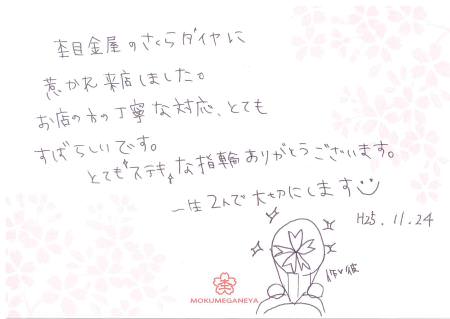 杢目金屋のさくらダイヤに
惹かれ来店しました。
お店の方の丁寧な対応、とても
すばらしいです。
とても"ステキ"な指輪ありがとうございます。
一生2人で大切にします
H25.11.24
MOKUMEGANEYA